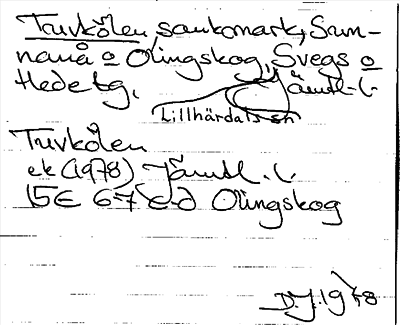 Tuvkölen, sankmark, Sun-
nanå o Olingskog, Svegs o
Hede tg, Jämtl. l.
Lillhärdals sn
Tuvkölen
ek (1978) Jämtl. l.
15E 6-7 c-d Olingskog
D.J. 1978